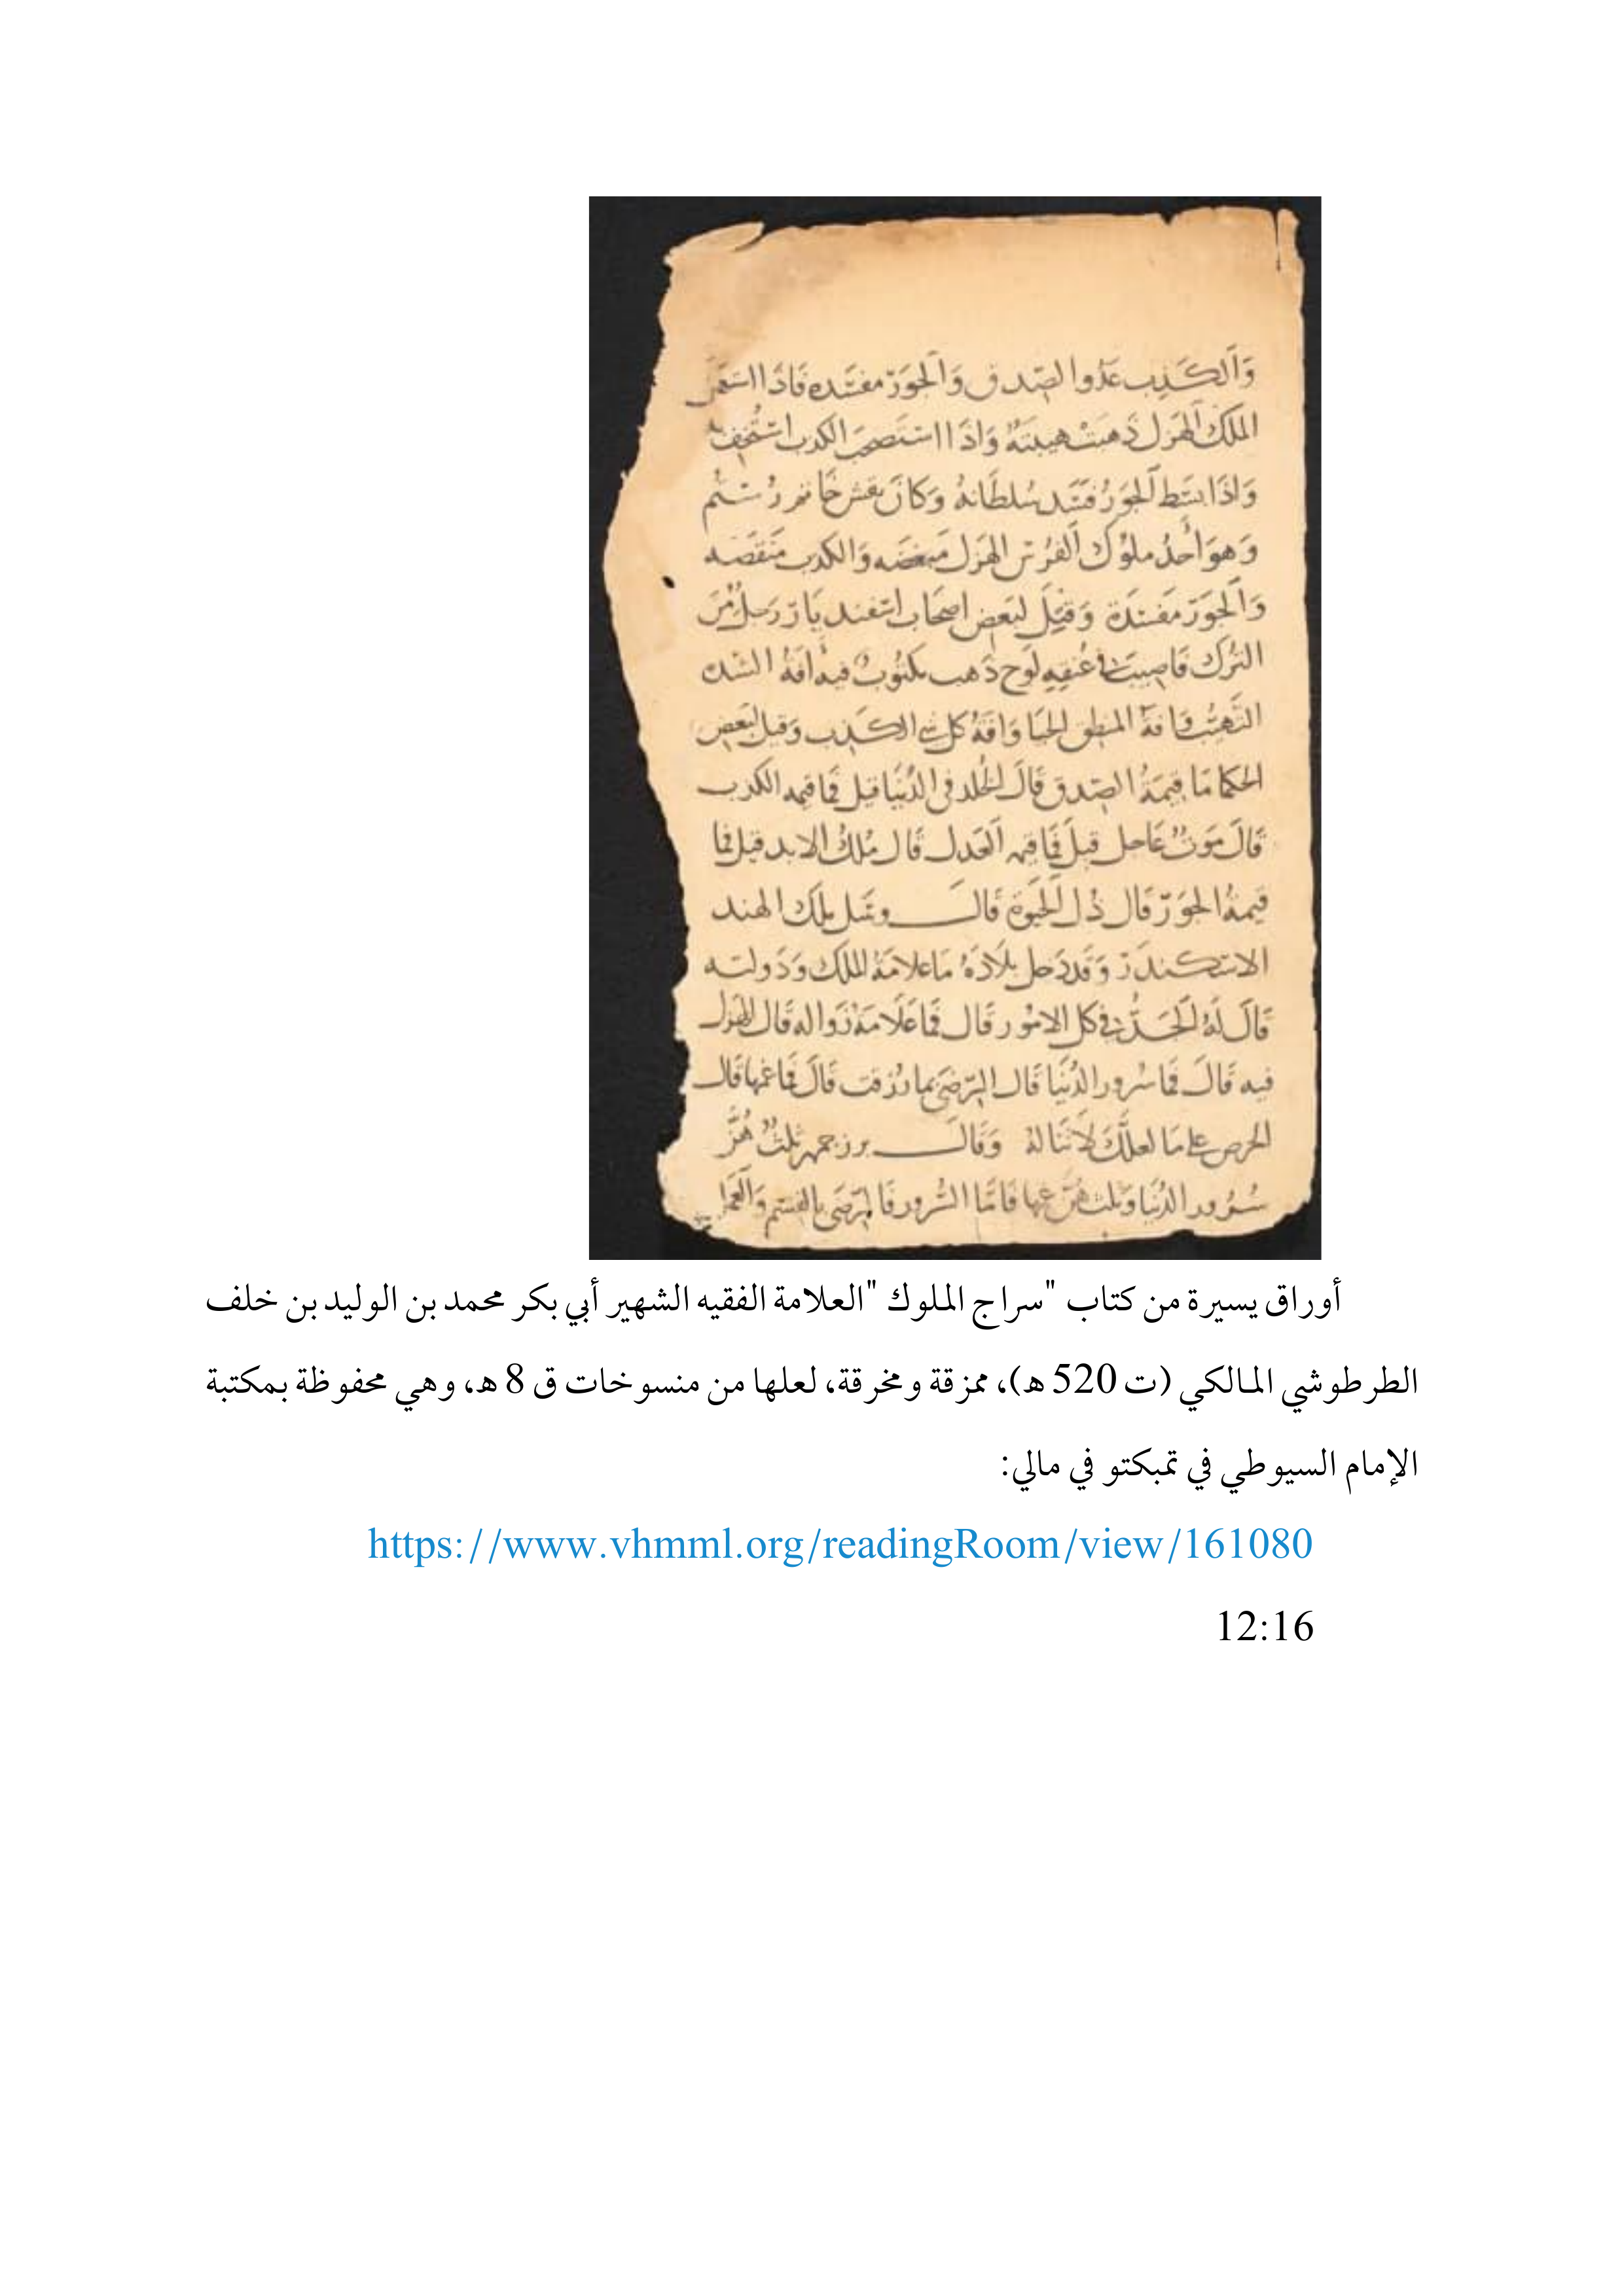 وَالكَذِب عَدُوا الصِّدق وَالجَوَرّ مفسَده فَاذَا استَعمَل
الملكُ الهَزل ذَهبَت هيبَتَهُ وَاذَا استَصحَبَ الكذب استُخِف به
وَاذَا بسَط الجَورُ فسَد سُلطَانهُ وَكانَ نقش خَاتم رُستم
وَهوَ أحدُ ملوُك الفُرْس الهَزل مَبغضَه وَالكذب مَنقصَه
وَالجَوَرّ مَفسَدَة وَقيِلَ لبَعض اصحَاب اسفند يَارّ رَجلٌ مْنَ
التُرك فَاصيبَ في عُنقِهِ لَوح ذَهب مكتُوبٌ فيه افةُ الشده
التَّهيُّب وافة المنطق الحيَا وَافَةُ كل شي الكَذِب وَقيل لبَعض
الحكما مَا قِيمَةُ الصِّدق قَالَ الخُلد في الدُنْيَا قيل فما قيمه الكذب
قَالَ مَوتٌ عَاجل قيلَ فَمَا قيمه العَدل قَال مُلكُ الابد قيل فما
قيمةُ الجَوَرّ قَال ذُل الحَيوة قَالَ وسَئل ملك الهند
الاسكندَر وَقَد دَخل بلَادَهُ مَا علامَةُ الملك وَدَولته
قَالَ لَهُ الجَدُّ في كل الامُور قَال فمَا عَلَامَة زَواله قَال الهَزل
فيه قَالَ فمَا سُرور الدُنيَا قَال الرّضَى بما رُزقت قَالَ فمَا غمهَا قَال
الحرص على مَا لعلَّكَ لَا تَنَالهُ وَقَالَ بزرجمهر ثلثٌ هُنَّ
سُرُور الدُنيَا وَثلث هُنَّ غمها فَامّا السُّرور فَا لرّضَى بالقسَم وَالعَمل
أوراق يسيرة من كتاب "سراج الملوك "العلامة الفقيه الشهير أبي بكر محمد بن الوليد بن خلف
الطرطوشي المالكي (ت 520 هـ)، ممزقة ومخرقة، لعلها من منسوخات ق 8 هـ، وهي محفوظة بمكتبة
الإمام السيوطي في تمبكتو في مالي:
https://www.vhmml.org/readingRoom/view/161080
12:16